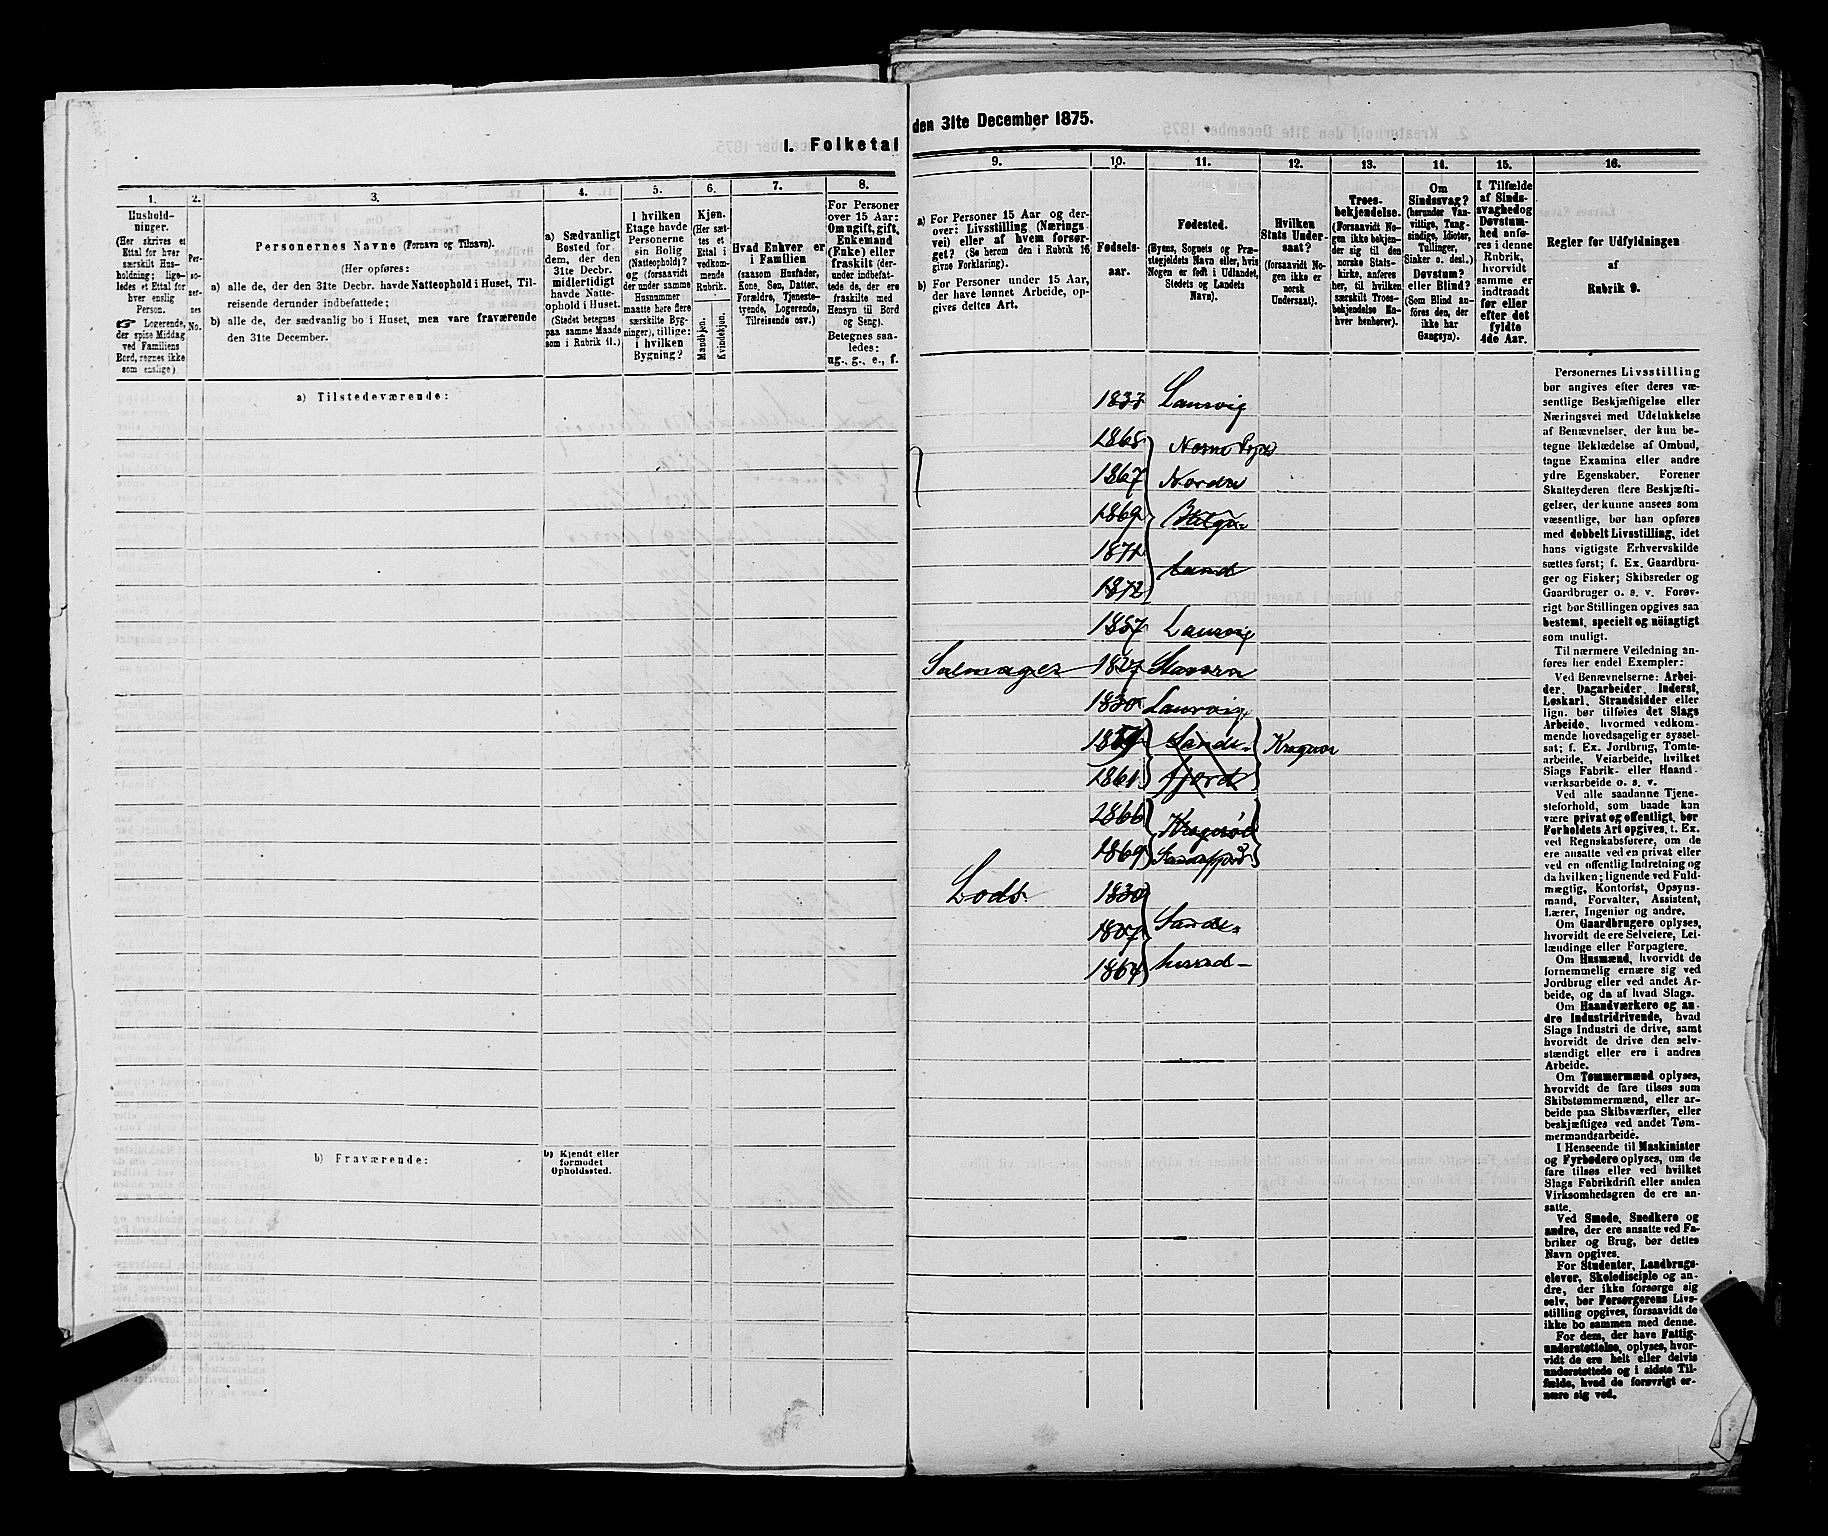 I. Folketal
den 31te December 1875.
1.
2.
3.
4.
5.
6.
7.
8.
Hushold-
ninger.
(Her skrives et
Ettal for hver
særskilt Hus-
holdning; lige-
ledes et Ettal for
hver enslig
Person.
☞ Logerende,
der spise Middag
ved Familiens
Bord, regnes ikke
som enslige).
Per-
so-
ner-
nes
No.
Personernes Navne (Fornavn og Tilnavn).
(Her opføres:
a) alle de, der den 31te Decbr. havde Natteophold i Huset, Til-
reisende derunder indbefattede;
b) alle de, der sædvanlig bo i Huset, men vare fraværende
den 31te December.
a) Sædvanligt
Bosted for
dem, der den
31te Decbr.
midlertidigt
havde Natte-
ophold i Huset.
(Stedet betegnes
paa samme Maade
som i Rubrik 11.)
I hvilken
Etage havde
Personerne
sin Bolig
(Natteophold)?
og (forsaavidt
der under samme
Husnummer
maatte høre flere
særskilte Byg-
ninger), tillige:
i hvilken
Bygning?
Kjøn.
(Her sæt-
tes et
Ettal i
vedkom-
mende
Rubrik.
Mandkjøn.
Kvindekjøn.
Hvad Enhver er
i Familien
(saasom Husfader,
Kone, Søn, Datter,
Forældre, Tjeneste-
tyende, Logerende,
Tilreisende osv.)
For Personer
over 15 Aar:
Om ugift, gift,
Enkemand
(Enke) eller
fraskilt (der-
under indbefat-
tede de, der ere
fraskilte med
Hensyn til Bord
og Seng).
Betegnes saa-
ledes:
ug., g., e., f.
a) Tilstedeværende:
b) Fraværende:
b) Kjendt eller
formodet
Opholdssted.
9.
10.
11.
12.
13.
14.
15.
16.
a) For Personer 15 Aar og der-
over: Livsstilling (Nærings-
vei) eller af hvem forsør-
get? (Se herom den i Rubrik 16
givne Forklaring).
b) For Personer under 15 Aar,
der have lønnet Arbeide, op-
gives dettes Art.
Fødsels-
aar.
Fødested.
(Byens, Sognets og Præ-
stegjeldets Navn, eller, hvis
Nogen er født i Udlandet,
Stedets og Landets
Navn).
Hvilken
Stats Under-
saat?
(forsaavidt No-
gen ikke er
norsk
Undersaat).
Troes-
bekjendelse.
(Forsaavidt No-
gen ikke bekjen-
der sig til den
norske Stats-
kirke, anføres
her, til hvilken
særskilt Troes-
bekjendelse En-
hver henhører).
Om
Sindssvag?
(herunder Van-
vittige, Tung-
sindige, Idioter,
Tullinger,
Sinker o. desl.)
Døvstum?
eller Blind?
(Som Blind an-
føres den, der
ikke har
Gangsyn).
I Tilfælde
af Sinds-
svaghed og
Døvstum-
hed anfø-
res i denne
Rubrik,
hvorvidt
samme er
indtraadt
før eller
efter det
fyldte
4de Aar.
Regler for Udfyldningen
af
Rubrik 9.
1833 Laurvig
1865
1867 Norden
1869
1871
1872
1857 Laurvig
Salmager 1827 Stavern
1830 Laurvig
1859 Sande- Kragerøe
1861 fjord
1866 Kragerøe
1869 Sandefjord
Lods 1830
1807 Sande-
1864 herred
Personernes Livsstilling
bør angives efter deres væ-
sentlige Beskjæftigelse eller
Næringsvei med Udelukkelse
af Benævnelser, der kun be-
tegne Beklædelse af Ombud,
tagne Examina eller andre
ydre Egenskaber. Forener
Skatteyderen flere Beskjæfti-
gelser, der kunne ansees som
væsentlige, bør han opføres
med dobbelt Livsstilling, idet
hans vigtigste Erhvervskilde
sættes først; f. Ex. Gaardbru-
ger og Fisker; Skibsreder og
Gaardbruger o. s. v. Forøv-
rigt bør Stillingen opgives saa
bestemt, specielt og nöiagtigt
som muligt.
Til nærmere Veiledning an-
føres her endel Exempler:
Ved Benævnelserne: Arbei-
der, Dagarbeider, Inderst,
Løskarl, Strandsidder eller
lign. bør tilføies det Slags
Arbeide, hvormed vedkom-
mende hovedsagelig er syssel-
sat; f. Ex. Jordbrug, Tomte-
arbeide, Veiarbeide, hvilket
Slags Fabrik- eller Haand-
værksarbeide o. s. v.
Ved alle saadanne Tjene-
steforhold, som baade kan
være privat og offentligt, bør
Forholdets Art opgives, t. Ex.
ved Regnskabsførere, om de
ere ansatte ved en privat eller
ved en offentlig Indretning og
da hvilken; lignende ved Fuld-
mægtig, Kontorist, Opsyns-
mand, Forvalter, Assistent,
Lærer, Ingeniør og andre.
Om Gaardbrugere oplyses,
hvorvidt de ere Selveiere, Lei-
lændinge eller Forpagtere.
Om Husmænd, hvorvidt de
fornemmelig ernære sig ved
Jordbrug eller ved andet Ar-
beide, og da af hvad Slags.
Om Haandværkere og an-
dre Industridrivende, hvad
Slags Industri de drive, samt
hvorvidt de drive den selv-
stændigt eller ere i andres
Arbeide.
Om Tømmermænd oplyses,
hvorvidt de fare tilsøs som
Skibstømmermænd, eller ar-
beide paa Skibsværfter, eller
beskjæftiges ved andet Tøm-
mermandsarbeide.
I Henseende til Maskinister
og Fyrbødere oplyses, om de
fare tilsøs eller ved hvilket
Slags Fabrikdrift eller anden
Virksomhedsgren de ere an-
satte.
Ved Smede, Snedkere og
andre, der ere ansatte ved Fa-
briker og Brug, bør dettes
Navn opgives.
For Studenter, Landbrugs-
elever, Skoledisciple og an-
dre, der ikke forsørge sig
selv, bør Forsørgerens Livs-
stilling opgives, forsaavidt de
ikke bo sammen med denne.
For dem, der have Fattig-
understøttelse, oplyses, hvor-
vidt de ere helt eller delvis
understøttede og i sidste Til-
fælde, hvad de forøvrigt er-
nære sig ved.